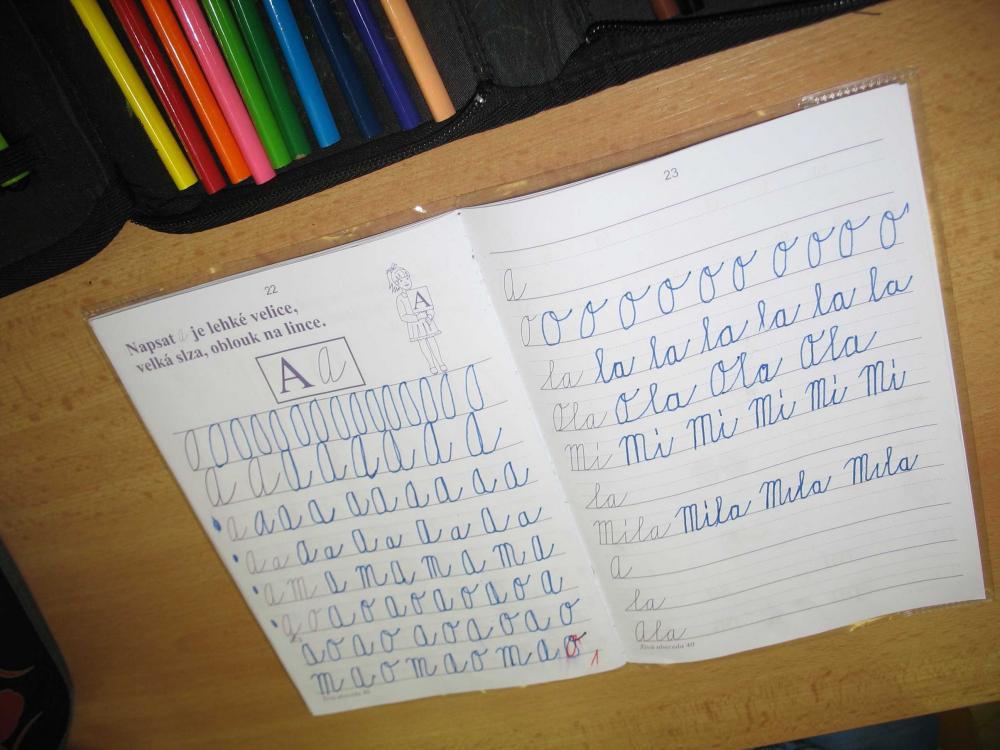 22
Napsat a je lehké velice,
velká slza, oblouk na lince.
A
A a
a a a a a a a a
a a a a a a a a a a
a a a a a a a a a a
a m a m a m a m a
a o a o a o a o a o a
a o a o a o a o a o
m a o m a o m a o 1
Živá abeceda 40
23
a
o o o o o o o o o o o
la la la la la la la
Ola Ola Ola Ola
Mi Mi Mi Mi Mi Mi
la
Mila Mila Mila Mila
a
la
Ala
Živá abeceda 40